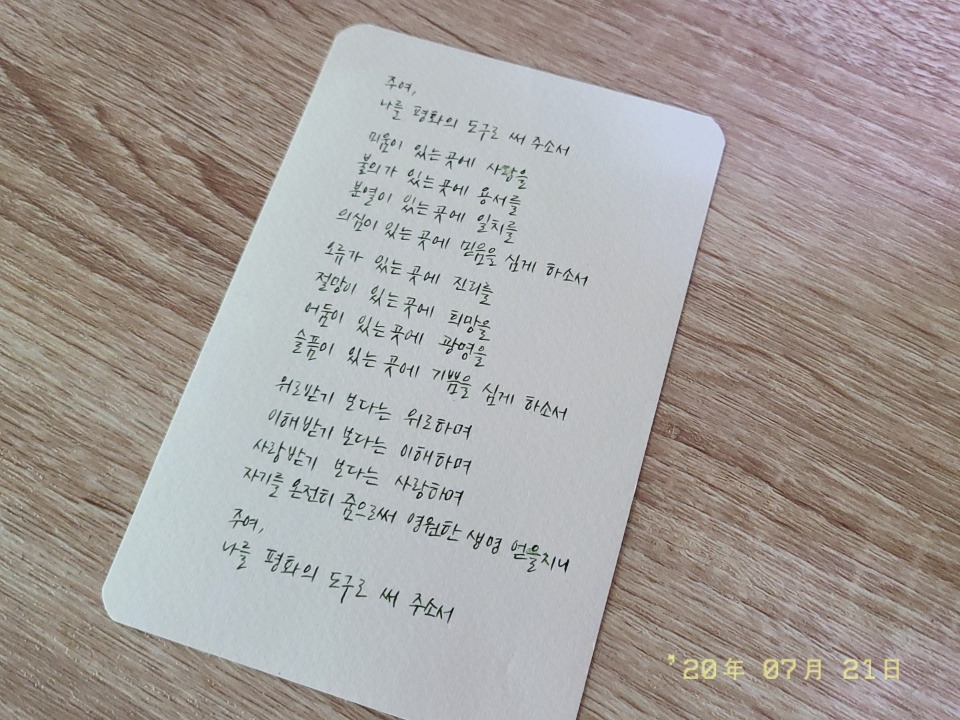 주여,
나를 평화의 도구로 써 주소서
미움이 있는 곳에 사랑을
불의가 있는 곳에 용서를
분열이 있는 곳에 일치를
의심이 있는 곳에 믿음을 심게 하소서
오류가 있는 곳에 진리를
절망이 있는 곳에 희망을
어둠이 있는 곳에 광명을
슬픔이 있는 곳에 기쁨을 심게 하소서
위로받기 보다는 위로하며
이해받기 보다는 이해하며
사랑받기 보다는 사랑하며
자기를 온전히 줌으로써 영원한 생명 얻을지니
주여,
나를 평화의 도구로 써 주소서
'20年 07月 21日